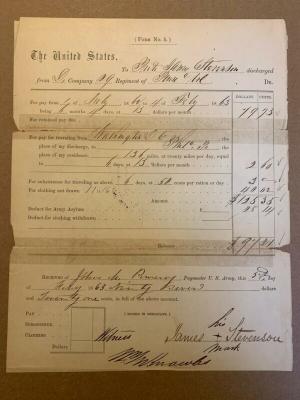 (FORM No. 5.)
The United States,
To Priv James Stevenson discharged
from Company 99 Regiment of Penn Vol Dr.
DOLLARS CENTS
For pay from of to of Feby 63
being months days, at 13 dollars per month 79 73
For retained pay due
For pay for traveling from Washington D C the
place of my discharge, to Phila Pa the
place of my residence, 136 miles, at twenty miles per day, equal
to 6 days, at 13 dollars per month 2 60
For subsistence for traveling as above 6 days, at 50 cents per ration or day 3
For clothing not drawn 40 02
Amount $125 35
Deduct for Army Asylum
Deduct for clothing overdrawn
Balance $97 21
RECEIVED of John M Pomeroy Paymaster U. S. Army, this day
of Feby 63 Ninety Seven dollars
and Twenty one cents, in full of the above account.
PAY
SUBSISTENCE
CLOTHING
Dollars
(SIGNED IN DUPLICATE.)
Witness
his
James + Stevenson
mark